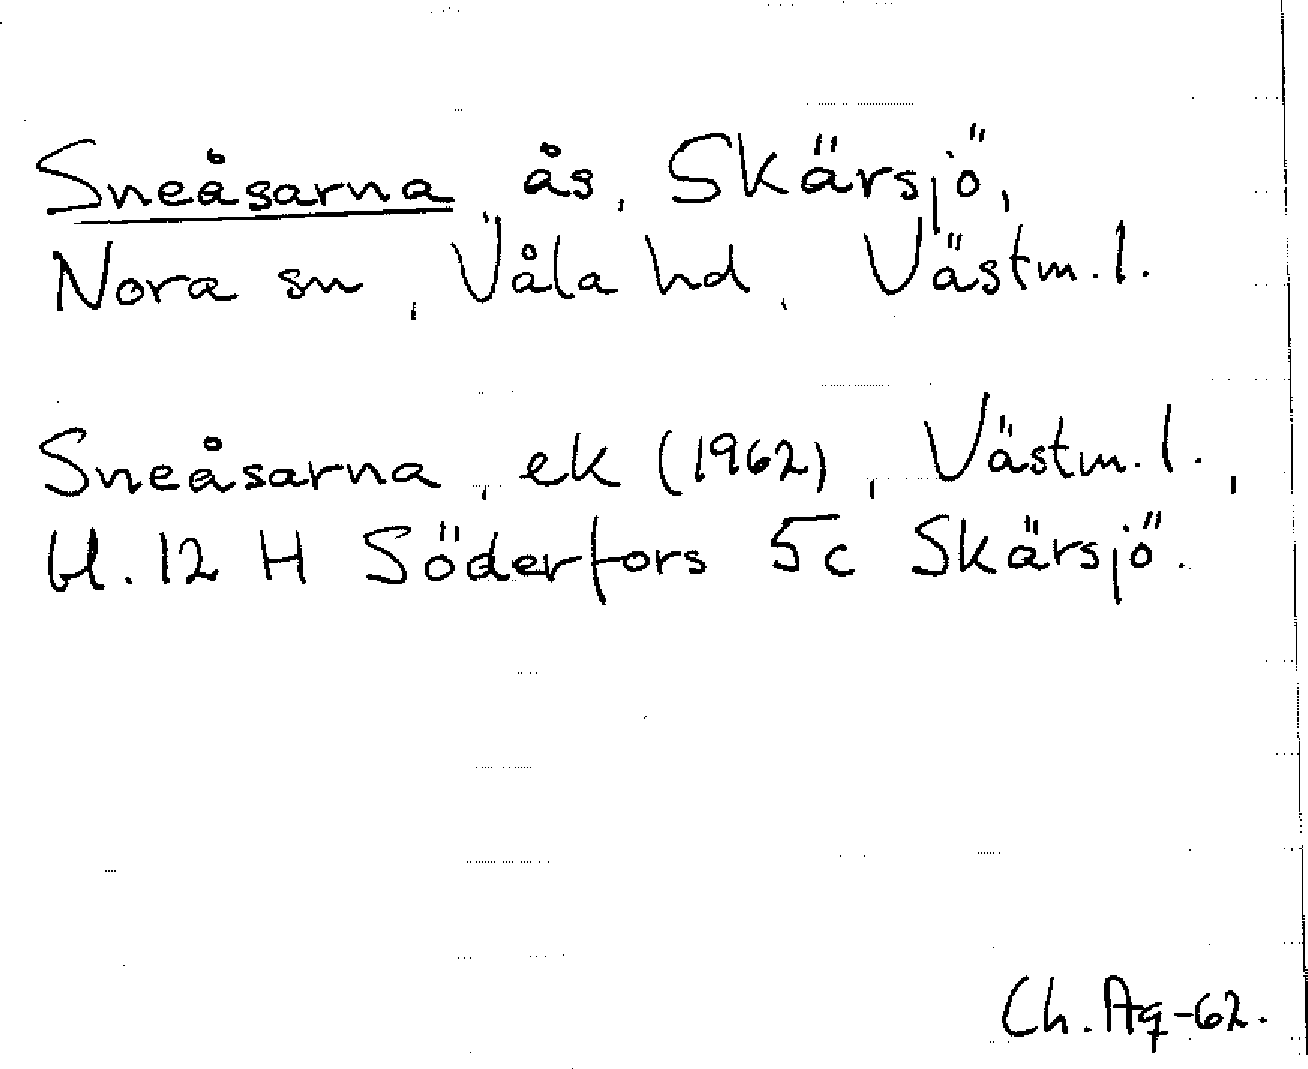 Sneåsarna, ås, Skärsjö,
Nora sn, Våla hd, Västm. l.
Sneåsarna, ek (1962), Västm. l.,
bl. 12 H Söderfors 5c Skärsjö.
Ch. Aq-62.